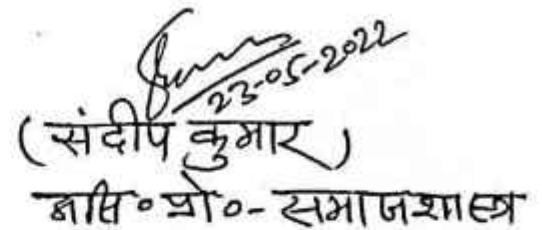 23-05-2022
(संदीप कुमार)
असि० प्रो०- समाजशास्त्र